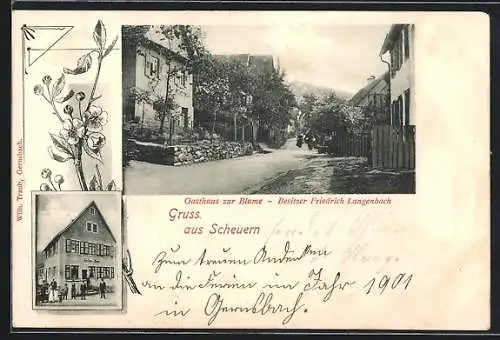 Wilh. Traub, Gernsbach.
Gasthaus zur Blume – Besitzer Friedrich Langenbach
Gruss
aus Scheuern
Zum treuen Andenken
an die Ferien im Jahr 1901
in Gernsbach.